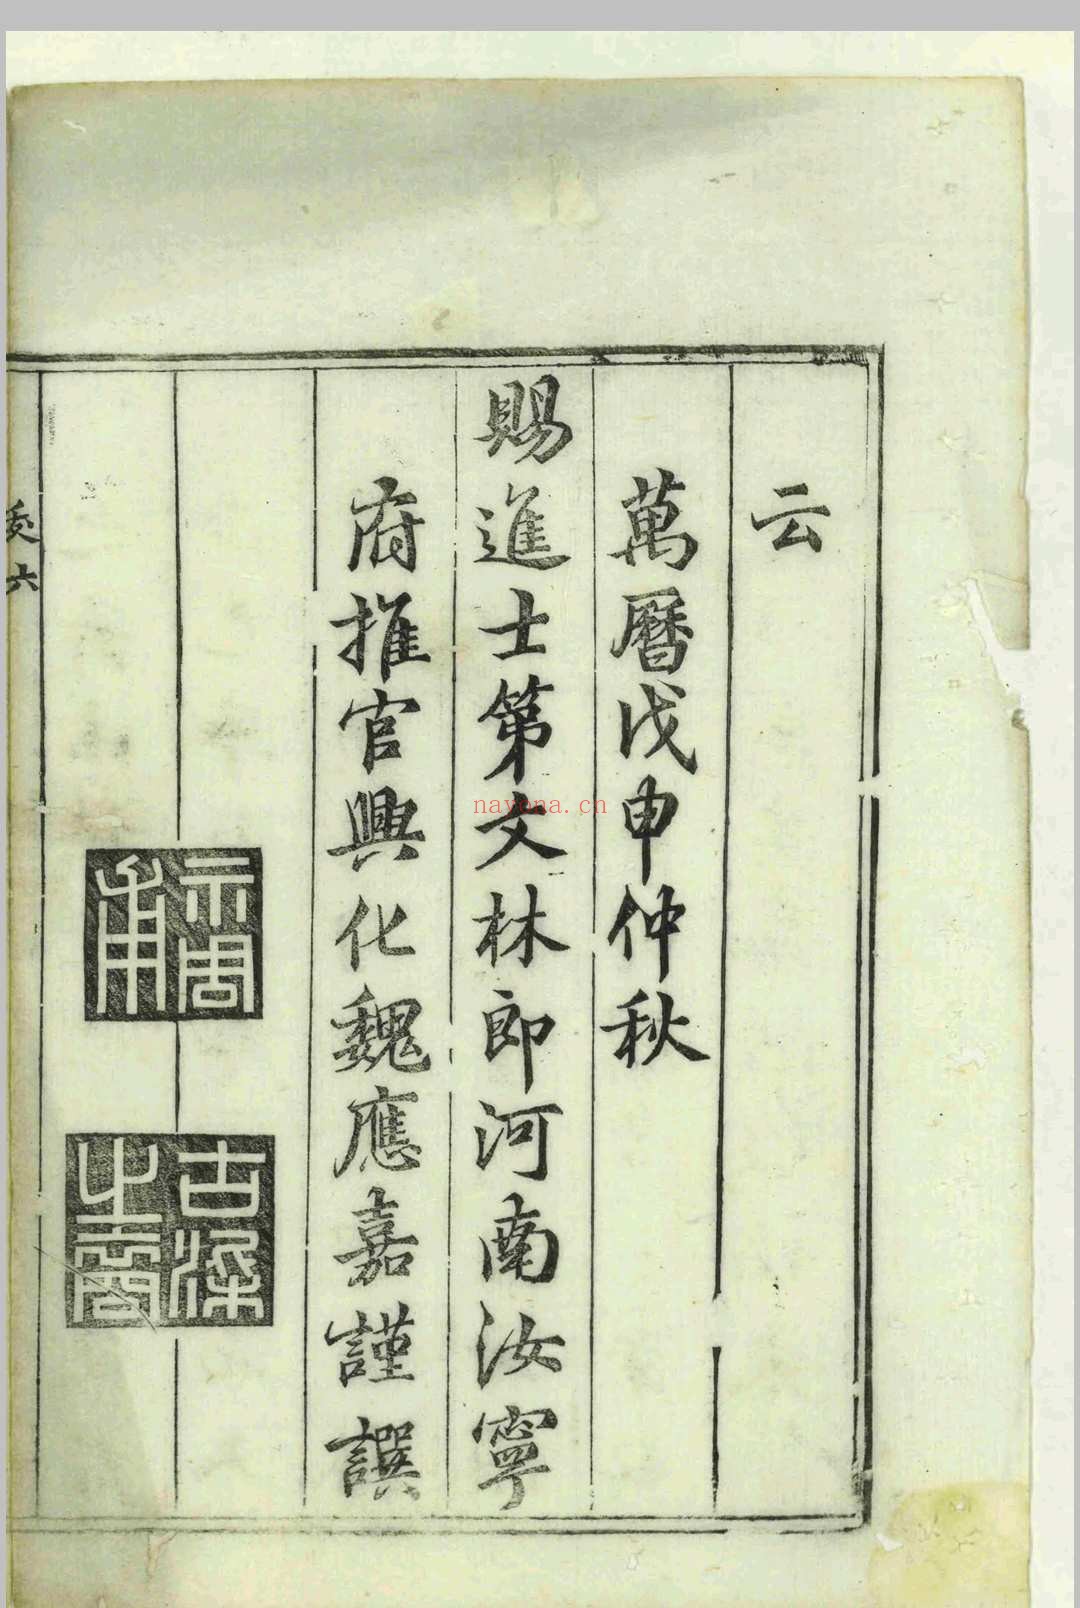 云
萬曆戊申仲秋
賜進士第文林郎河南汝寧
府推官興化魏應嘉謹譔
示周甫
古梁之裔
六
nayona.cn